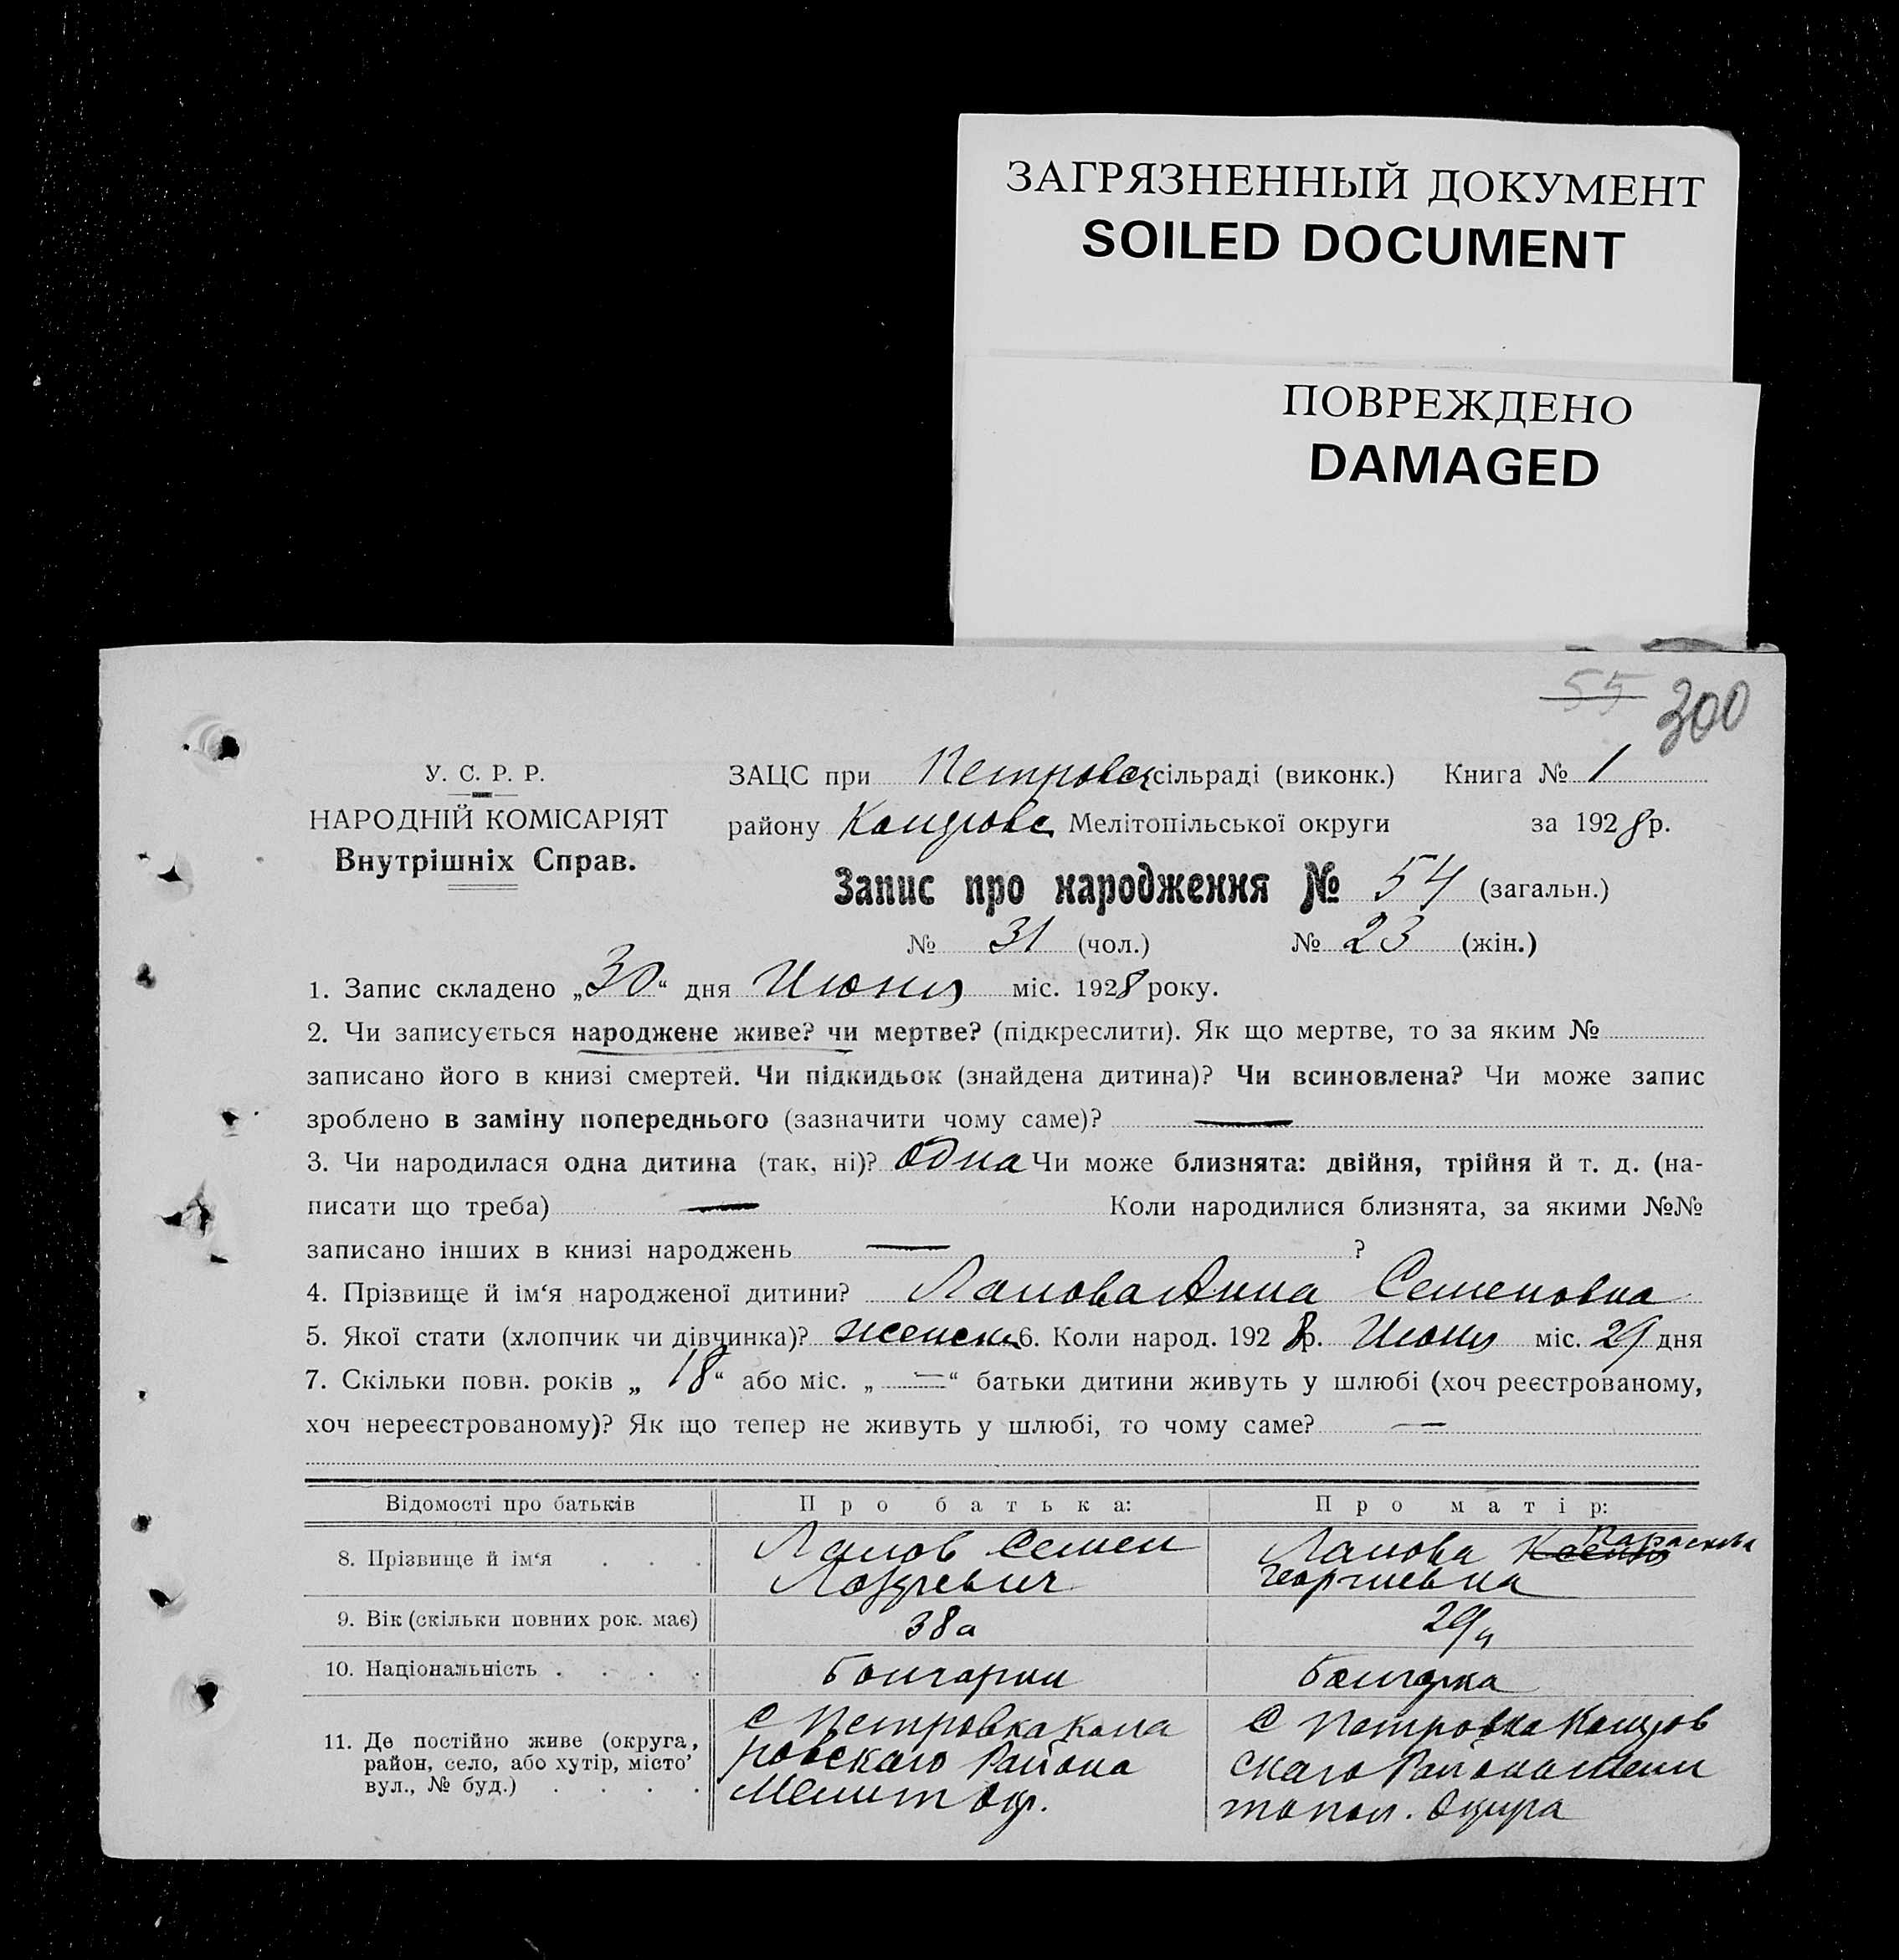 ЗАГРЯЗНЕННЫЙ ДОКУМЕНТ
SOILED DOCUMENT
ПОВРЕЖДЕНО
DAMAGED
55 300
У. С. Р. Р.
НАРОДНІЙ КОМІСАРІЯТ
Внутрішніх Справ.
ЗАЦС при Петровск сільраді (виконк.) Книга № 1
району Мелітопільської округи за 1928 р.
Запис про народження № 54 (загальн.)
№ 31 (чол.) № 23 (жін.)
1. Запис складено „30“ дня Июня міс. 1928 року.
2. Чи записується народжене живе? чи мертве? (підкреслити). Як що мертве, то за яким №
записано його в книзі смертей. Чи підкидьок (знайдена дитина)? Чи всиновлена? Чи може запис
зроблено в заміну попереднього (зазначити чому саме)? —
3. Чи народилася одна дитина (так, ні)? Одна Чи може близнята: двійня, трійня й т. д. (на-
писати що треба) — Коли народилися близнята, за якими №№
записано інших в книзі народжень — ?
4. Прізвище й ім‘я народженої дитини? Анна Семеновна
5. Якої стати (хлопчик чи дівчинка)? женск 6. Коли народ. 1928 р. Июня міс. 29 дня
7. Скільки повн. років „18“ або міс. „—“ батьки дитини живуть у шлюбі (хоч реєстрованому,
хоч нереєстрованому)? Як що тепер не живуть у шлюбі, то чому саме? —
Відомості про батьків Про батька: Про матір:
8. Прізвище й ім‘я . . . Семен Ксения Параскева
Георгиевна
9. Вік (скільки повних рок. має) 38 29
10. Національність . . . . Болгарин Болгарка
11. Де постійно живе (округа,
район, село, або хутір, місто’
вул., № буд.) . . . .
С Петровка
ровскаго Района
Мелит Окр.
С Петровка
скаго Района Мели
топол. Округа